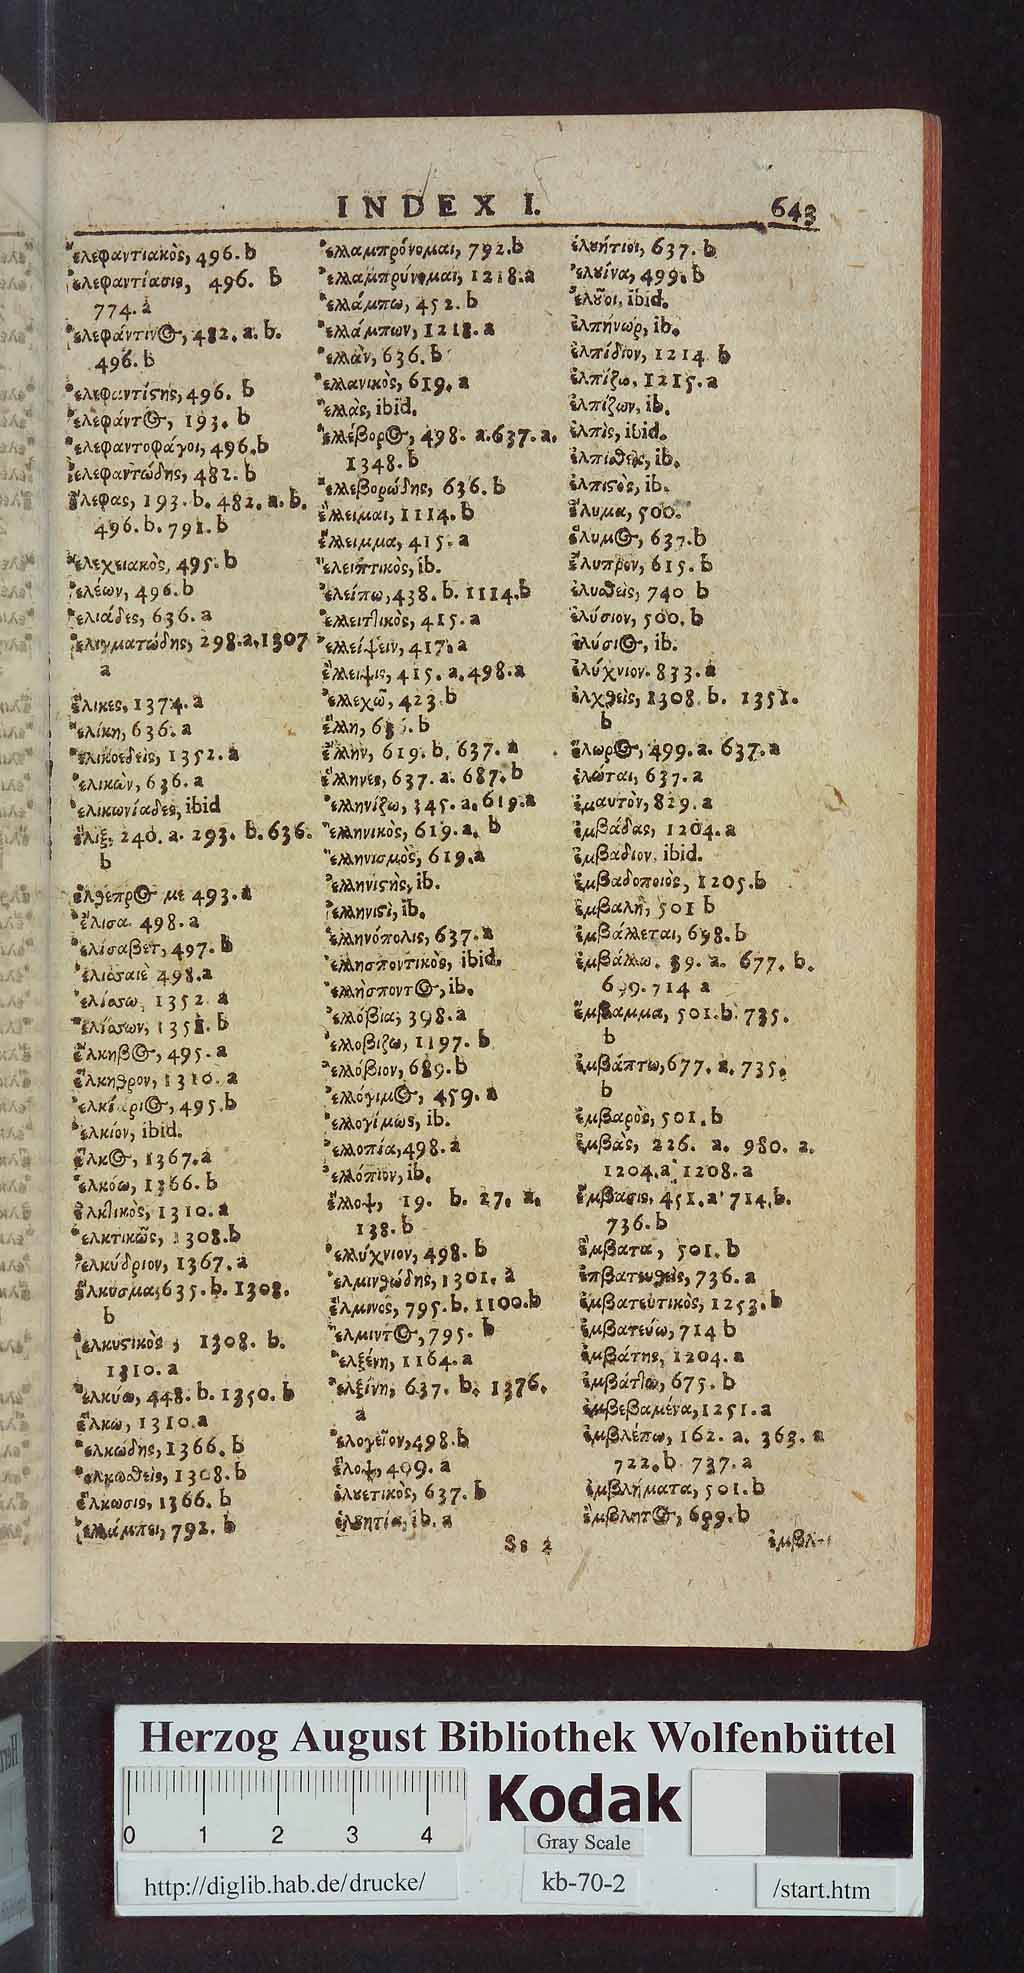 INDEX I. 643
ἐλεφαντιακὸς, 496. b
ἐλεφαντίασις, 496. b
774. a
ἐλεφάντινος, 482. a. b.
496. b
ἐλεφαντίστης, 496. b
ἐλεφάντος, 193. b
ἐλεφαντοφάγοι, 496. b
ἐλεφαντώδης, 482. b
ἔλεφας, 193. b. 482. a. b.
496. b. 791. b
ἐλεχειακὸς, 495. b
ἐλέων, 496. b
ἐλιάδες, 636. a
ἑλιγματώδης, 298. a. 1307
a
ἕλικες, 1374. a
ἑλίκη, 636. a
ἑλικοεδεὶς, 1352. a
ἑλικὼν, 636. a
ἑλικωνίαδες, ibid
ἕλιξ, 240. a. 293. b. 636.
b
ἐλθέπρος με 493. a
ἔλισα 498. a
ἐλίσαβετ, 497. b
ἐλισσαιὲ 498. a
ἑλίσσω, 1352 a
ἑλίσσων, 1351. b
ἕλκηβος, 495. a
ἕλκηθρον, 1310. a
495. b
ἑλκίον, ibid.
ἕλκος, 1367. a
ἑλκόω, 1366. b
ἑλκτικὸς, 1310. a
ἑλκτικῶς, 1308. b
ἑλκύδριον, 1367. a
ἕλκυσμα, 635. b. 1308.
b
ἑλκυστικὸς, 1308. b.
1310. a
ἑλκύω, 448. b. 1350. b
ἕλκω, 1310. a
ἑλκώδης, 1366. b
ἑλκωθεὶς, 1308. b
ἕλκωσις, 1366. b
ἐλλάμπει, 792. b
ἐλλαμπρόνομαι, 792. b
ἐλλαμπρύνομαι, 1218. a
ἐλλάμπω, 452. b
ἐλλάμπων, 1218. a
ἐλλὰν, 636. b
ἑλλανικὸς, 619. a
ἑλλὰς, ibid.
ἑλλέβορος, 498. a. 637. a.
1348. b
ἑλλεβορώδης, 636. b
ἔλλειμαι, 1114. b
ἔλλειμμα, 415. a
ἐλειπτικὸς, ib.
ἐλείπω, 438. b. 1114. b
ἐλλειπτικὸς, 415. a
ἐλλείψειν, 417. a
ἔλλειψις, 415. a. 498. a
ἐλλεχῶ, 423. b
ἕλλη, b
ἕλλην, 619. b. 637. a
ἕλληνες, 637. a. 687. b
ἑλληνίζω, 345. a. 619. a
ἑλληνικὸς, 619. a. b
ἑλληνισμὸς, 619. a
ἑλληνιστὴς, ib.
ἑλληνιστὶ, ib.
ἑλληνόπολις, 637. a
ἑλλησποντικὸς, ibid.
ἑλλήσποντος, ib.
ἐλλόβια, 398. a
ἐλλοβίζω, 1197. b
ἐλλόβιον, 689. b
ἐλλόγιμος, 459. a
ἐλλογίμως, ib.
ἐλλοπία, 498. a
ἐλλόπιον, ib.
ἔλλοψ, 19. b. 27. a.
138. b
ἐλλύχνιον, 498. b
ἑλμινθώδης, 1301. a
ἕλμινος, 795. b. 1100. b
ἕλμιντος, 795. b
ἑλξένη, 1164. a
ἑλξίνη, 637. b. 1376.
a
ἐλογεῖον, 498. b
ἔλοψ, 409. a
ἐλουετικὸς, 637. b
ἐλουητία, ib. a
ἐλουήτιοι, 637. b
ἐλουίνα, 499. b
ἐλοῦοι, ibid.
ἐλπήνωρ, ib.
ἐλπίδιον, 1214 b
ἐλπίζω, 1215. a
ἐλπίζων, ib.
ἐλπὶς, ibid.
ἐλπισθεὶς, ib.
ἐλπιστὸς, ib.
ἔλυμα, 500.
ἔλυμος, 637. b
ἔλυπρον, 615. b
ἐλυσθεὶς, 740 b
ἐλύσιον, 500. b
ἐλύσιος, ib.
ἐλύχνιον. 833. a
ἑλχθεὶς, 1308. b. 1351.
b
ἕλωρος, 499. a. 637. a
ἑλῶται, 637. a
ἐμαυτὸν, 829. a
ἐμβάδας, 1204. a
ἐμβαδιον. ibid.
ἐμβαδοποιὸς, 1205. b
ἐμβαλὴ, 501 b
ἐμβάλλεται, 698. b
ἐμβάλλω. 39. a. 677. b.
699. 714 a
ἔμβαμμα, 501. b. 735.
b
ἐμβάπτω, 677. a. 735.
b
ἐμβαρὸς, 501. b
ἐμβὰς, 226. a. 980. a.
1204. a. 1208. a
ἔμβασις, 451. a. 714. b.
736. b
ἔμβατα, 501. b
ἐπβατευθεὶς, 736. a
ἐμβατευτικὸς, 1253. b
ἐμβατεύω, 714 b
ἐμβάτης, 1204. a
ἐμβάτλω, 675. b
ἐμβεβαμένα, 1251. a
ἐμβλέπω, 162. a. 363. a
722. b 737. a
ἐμβλήματα, 501. b
ἔμβλητος, 699. b
Ss 2 ἐμβλ-
Herzog August Bibliothek Wolfenbüttel
0 1 2 3 4
Kodak
Gray Scale
http://diglib.hab.de/drucke/ kb-70-2 /start.htm